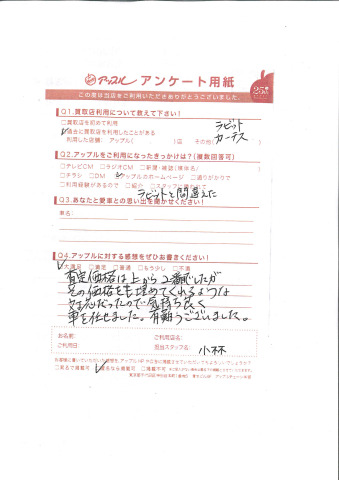 アップル アンケート用紙
この度は当店をご利用いただきありがとうございました。
25th
Q1.買取店利用について教えて下さい!
□買取店を初めて利用
□過去に買取店を利用したことがある
利用した店舗: アップル( )店 その他( ラビット カーチス
Q2.アップルをご利用になったきっかけは?(複数回答可)
□テレビCM □ラジオCM □新聞・雑誌(媒体名: )
□チラシ □DM □アップルのホームページ □通りがかりで
□利用経験があるので □紹介 □スタッフに誘われて
ラビットと間違えた
Q3.あなたと愛車との思い出を聞かせてください!
車名:
Q4.アップルに対する感想をぜひお書きください!
□大満足 □満足 □普通 □もう少し □不満
査定価格は上から2番でしたが
その価格をも埋めてくれるような
対応だったので気持ち良く
車を任せました。有難うございました。
お名前: ご利用店名:
ご利用日: 担当スタッフ名: 小林
□実名で掲載可 □匿名なら掲載可 □掲載不可